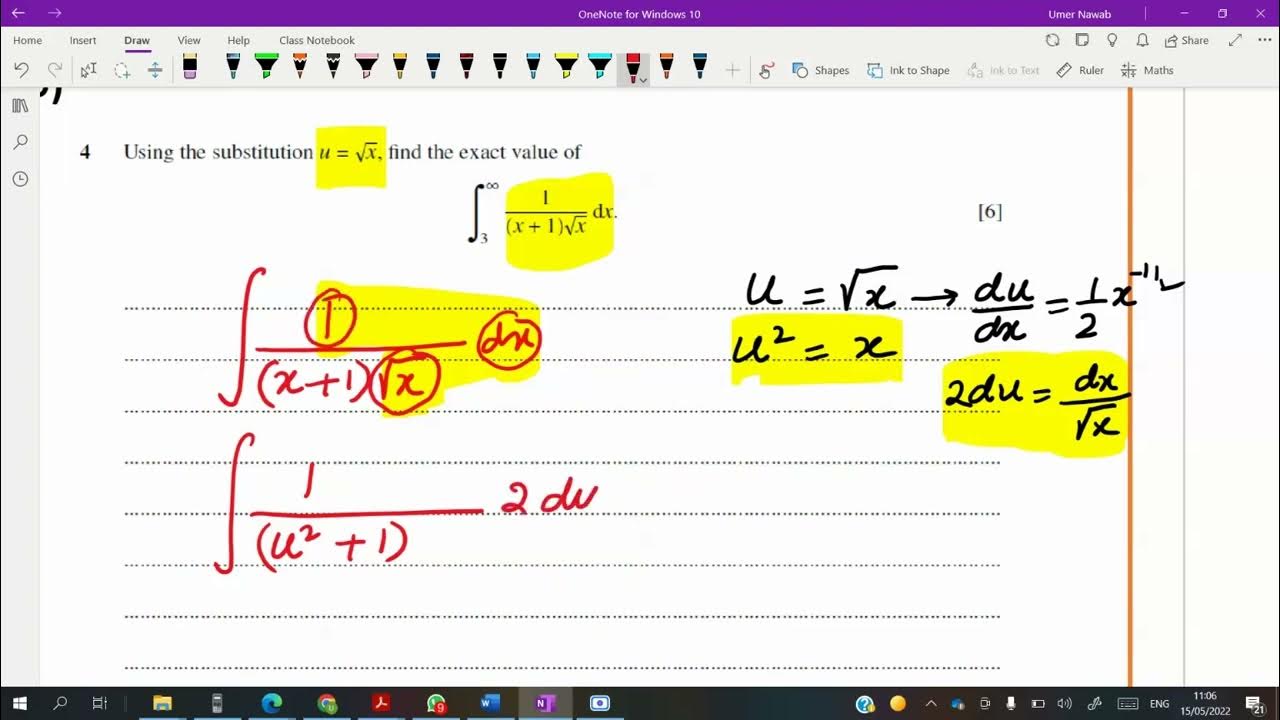 OneNote for Windows 10
Umer Nawab
Home Insert Draw View Help Class Notebook
Share
Shapes Ink to Shape Ink to Text Ruler Maths
4 Using the substitution u = √x, find the exact value of
∫₃^∞ 1/((x + 1)√x) dx. [6]
∫ 1/((x+1)(√x)) dx
u = √x → du/dx = 1/2 x^-1/2
u² = x
2du = dx/√x
∫ 1/(u² + 1) 2 du
ENG
11:06
15/05/2022
21